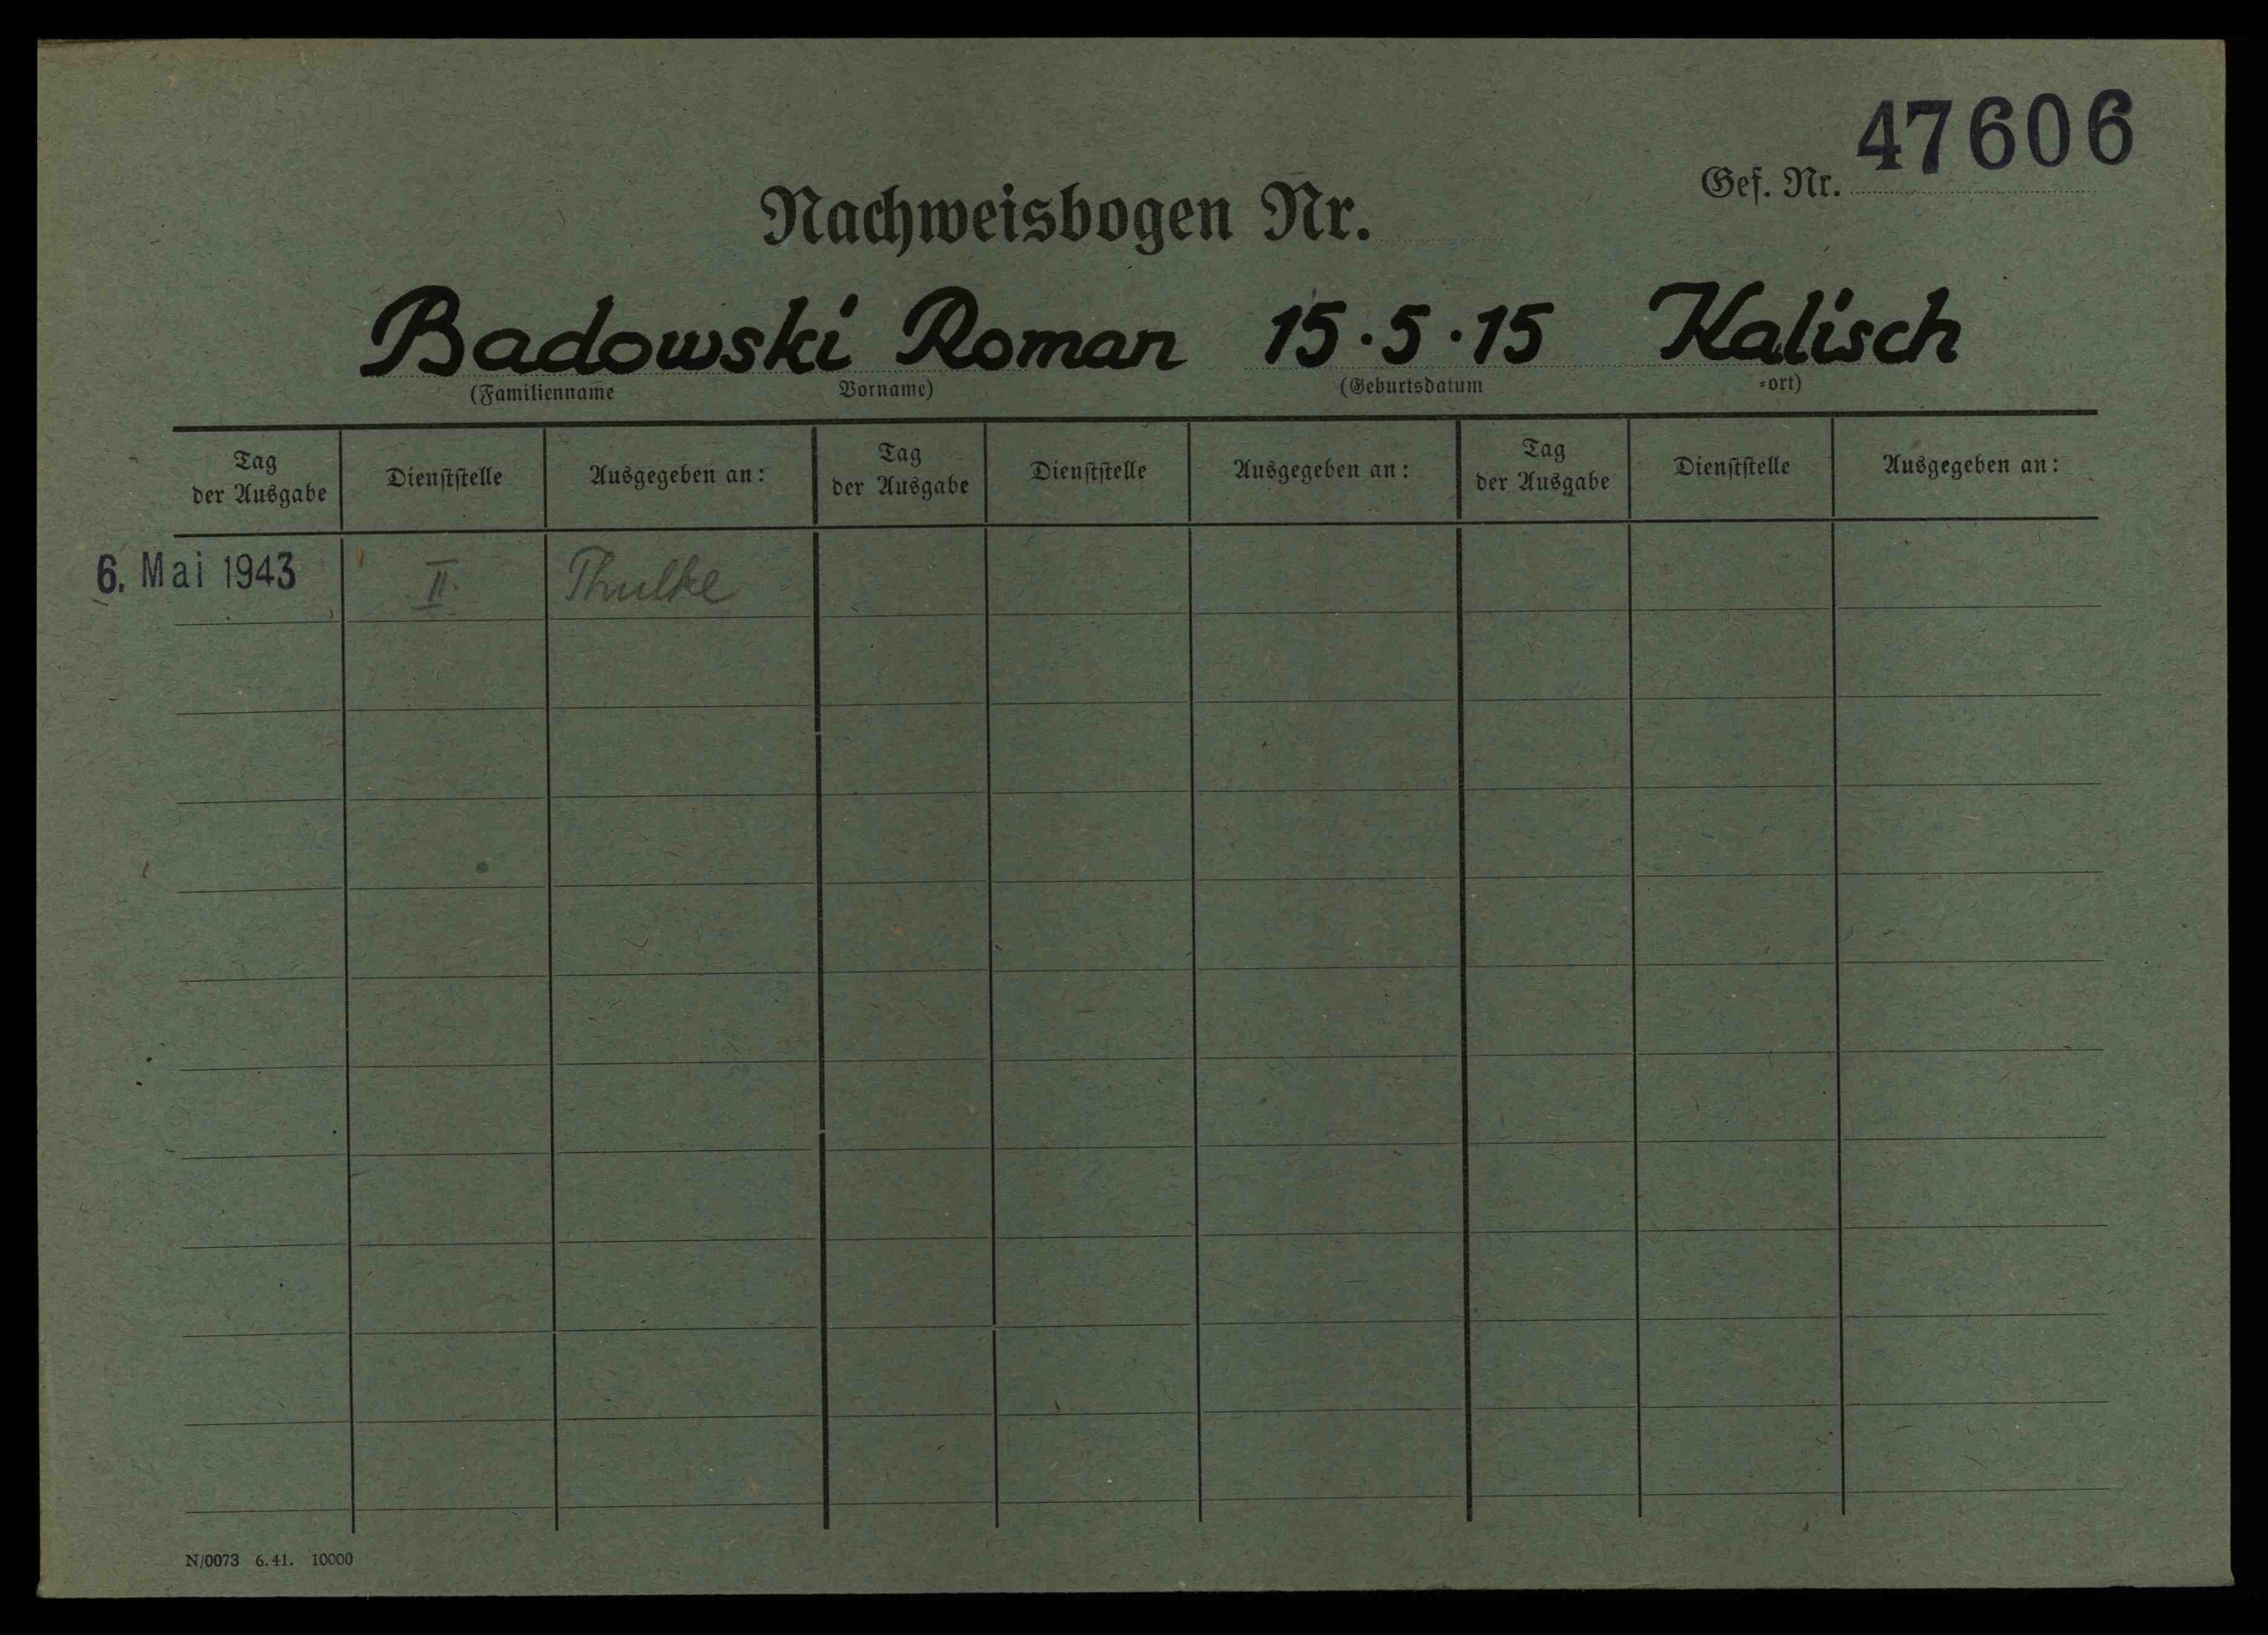 47606
Gef. Nr.
Nachweisbogen Nr.
Badowski Roman 15.5.15 Kalisch
(Familienname Vorname) (Geburtsdatum =ort)
Tag der Ausgabe Dienststelle Ausgegeben an: Tag der Ausgabe Dienststelle Ausgegeben an: Tag der Ausgabe Dienststelle Ausgegeben an:
6. Mai 1943 II. Thulke
N/0073 6.41. 10000